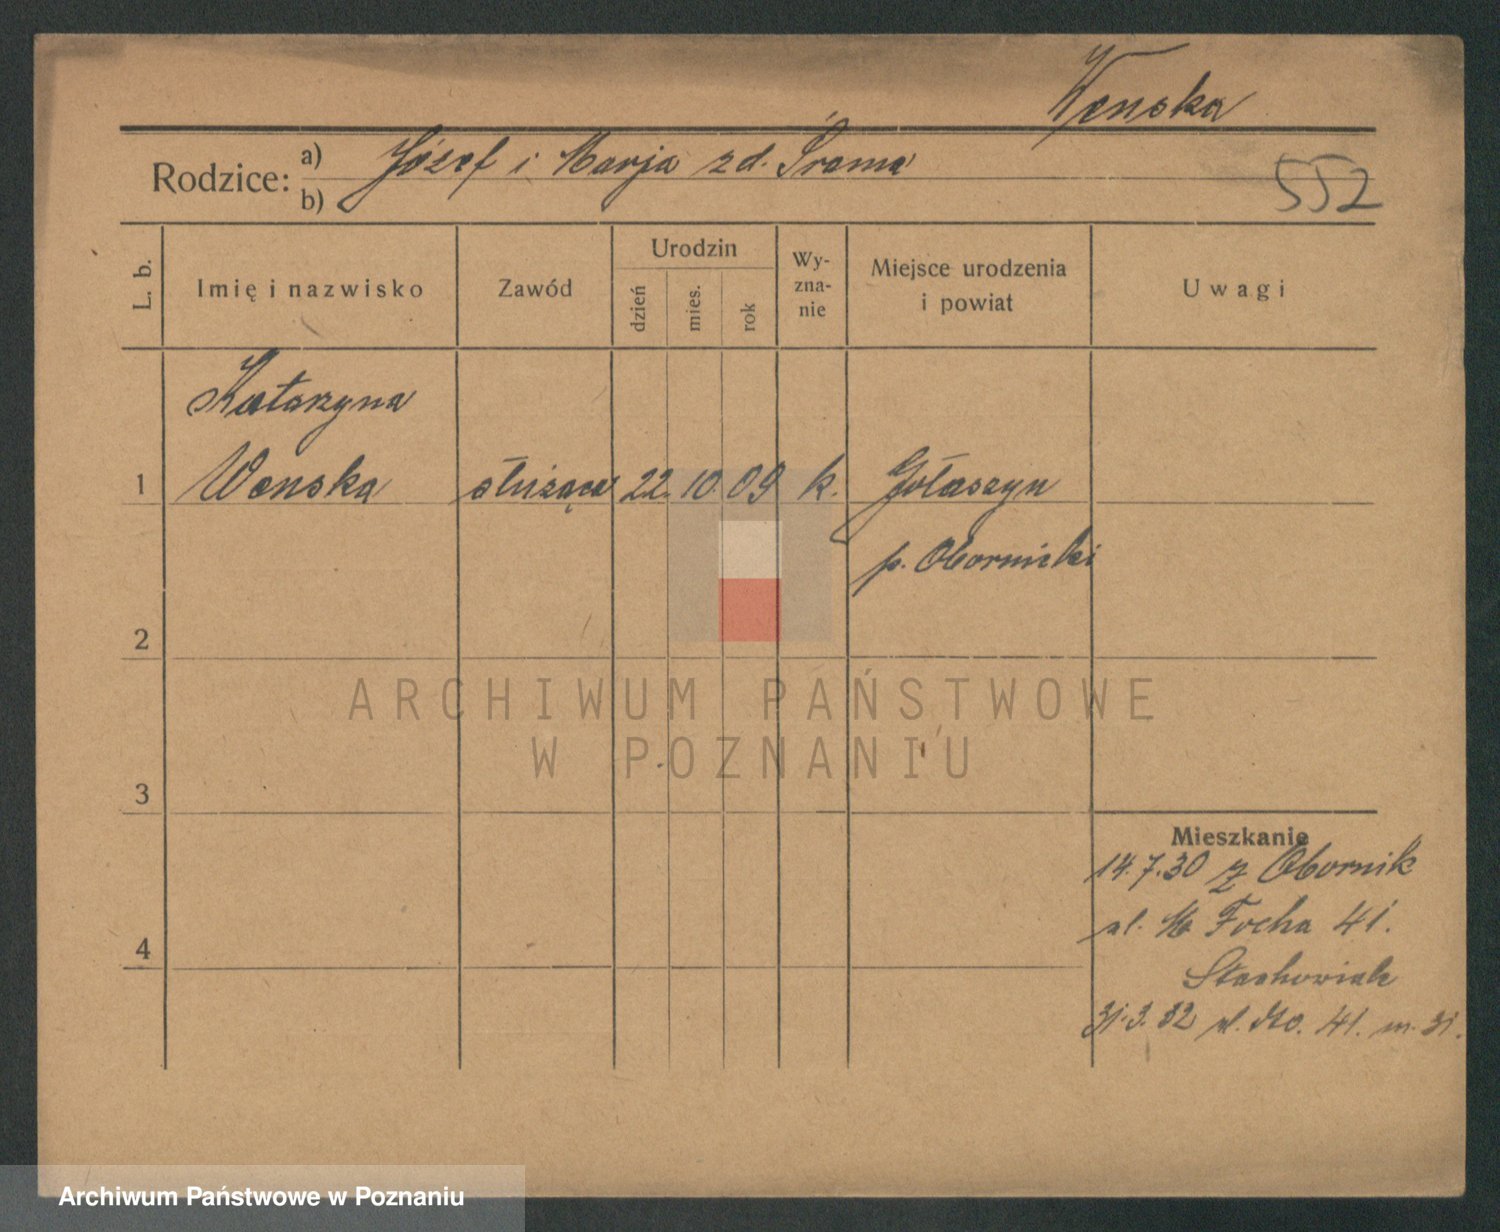 Wenska
Rodzice: a) Józef i Marja zd. Śrama
b)
552
L. b.
Imię i nazwisko
Zawód
Urodzin
dzień
mies.
rok
Wy-
zna-
nie
Miejsce urodzenia
i powiat
Uwagi
Katarzyna
1 Wenska służąca 22. 10. 09 k. Gołaszyn
p. Obornicki
2
3
4
ARCHIWUM PAŃSTWOWE
W POZNANIU
Mieszkanie
14.7.30 z Obornik
ul. M Focha 41.
Stachowiak
31.3.32 41. m. 31.
Archiwum Państwowe w Poznaniu